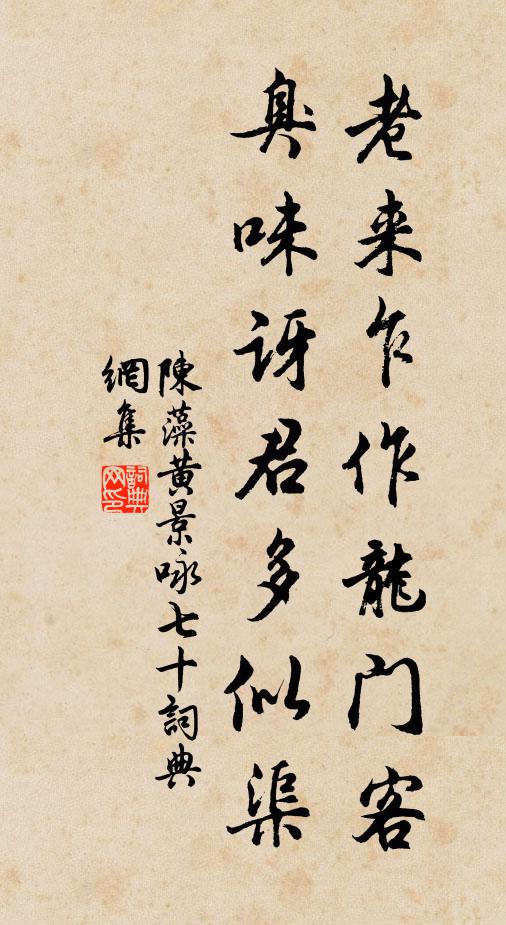 老来乍作龍门客
臭味讶君多似渠
陳藻黄景咏七十詞典
網集
詞典网印